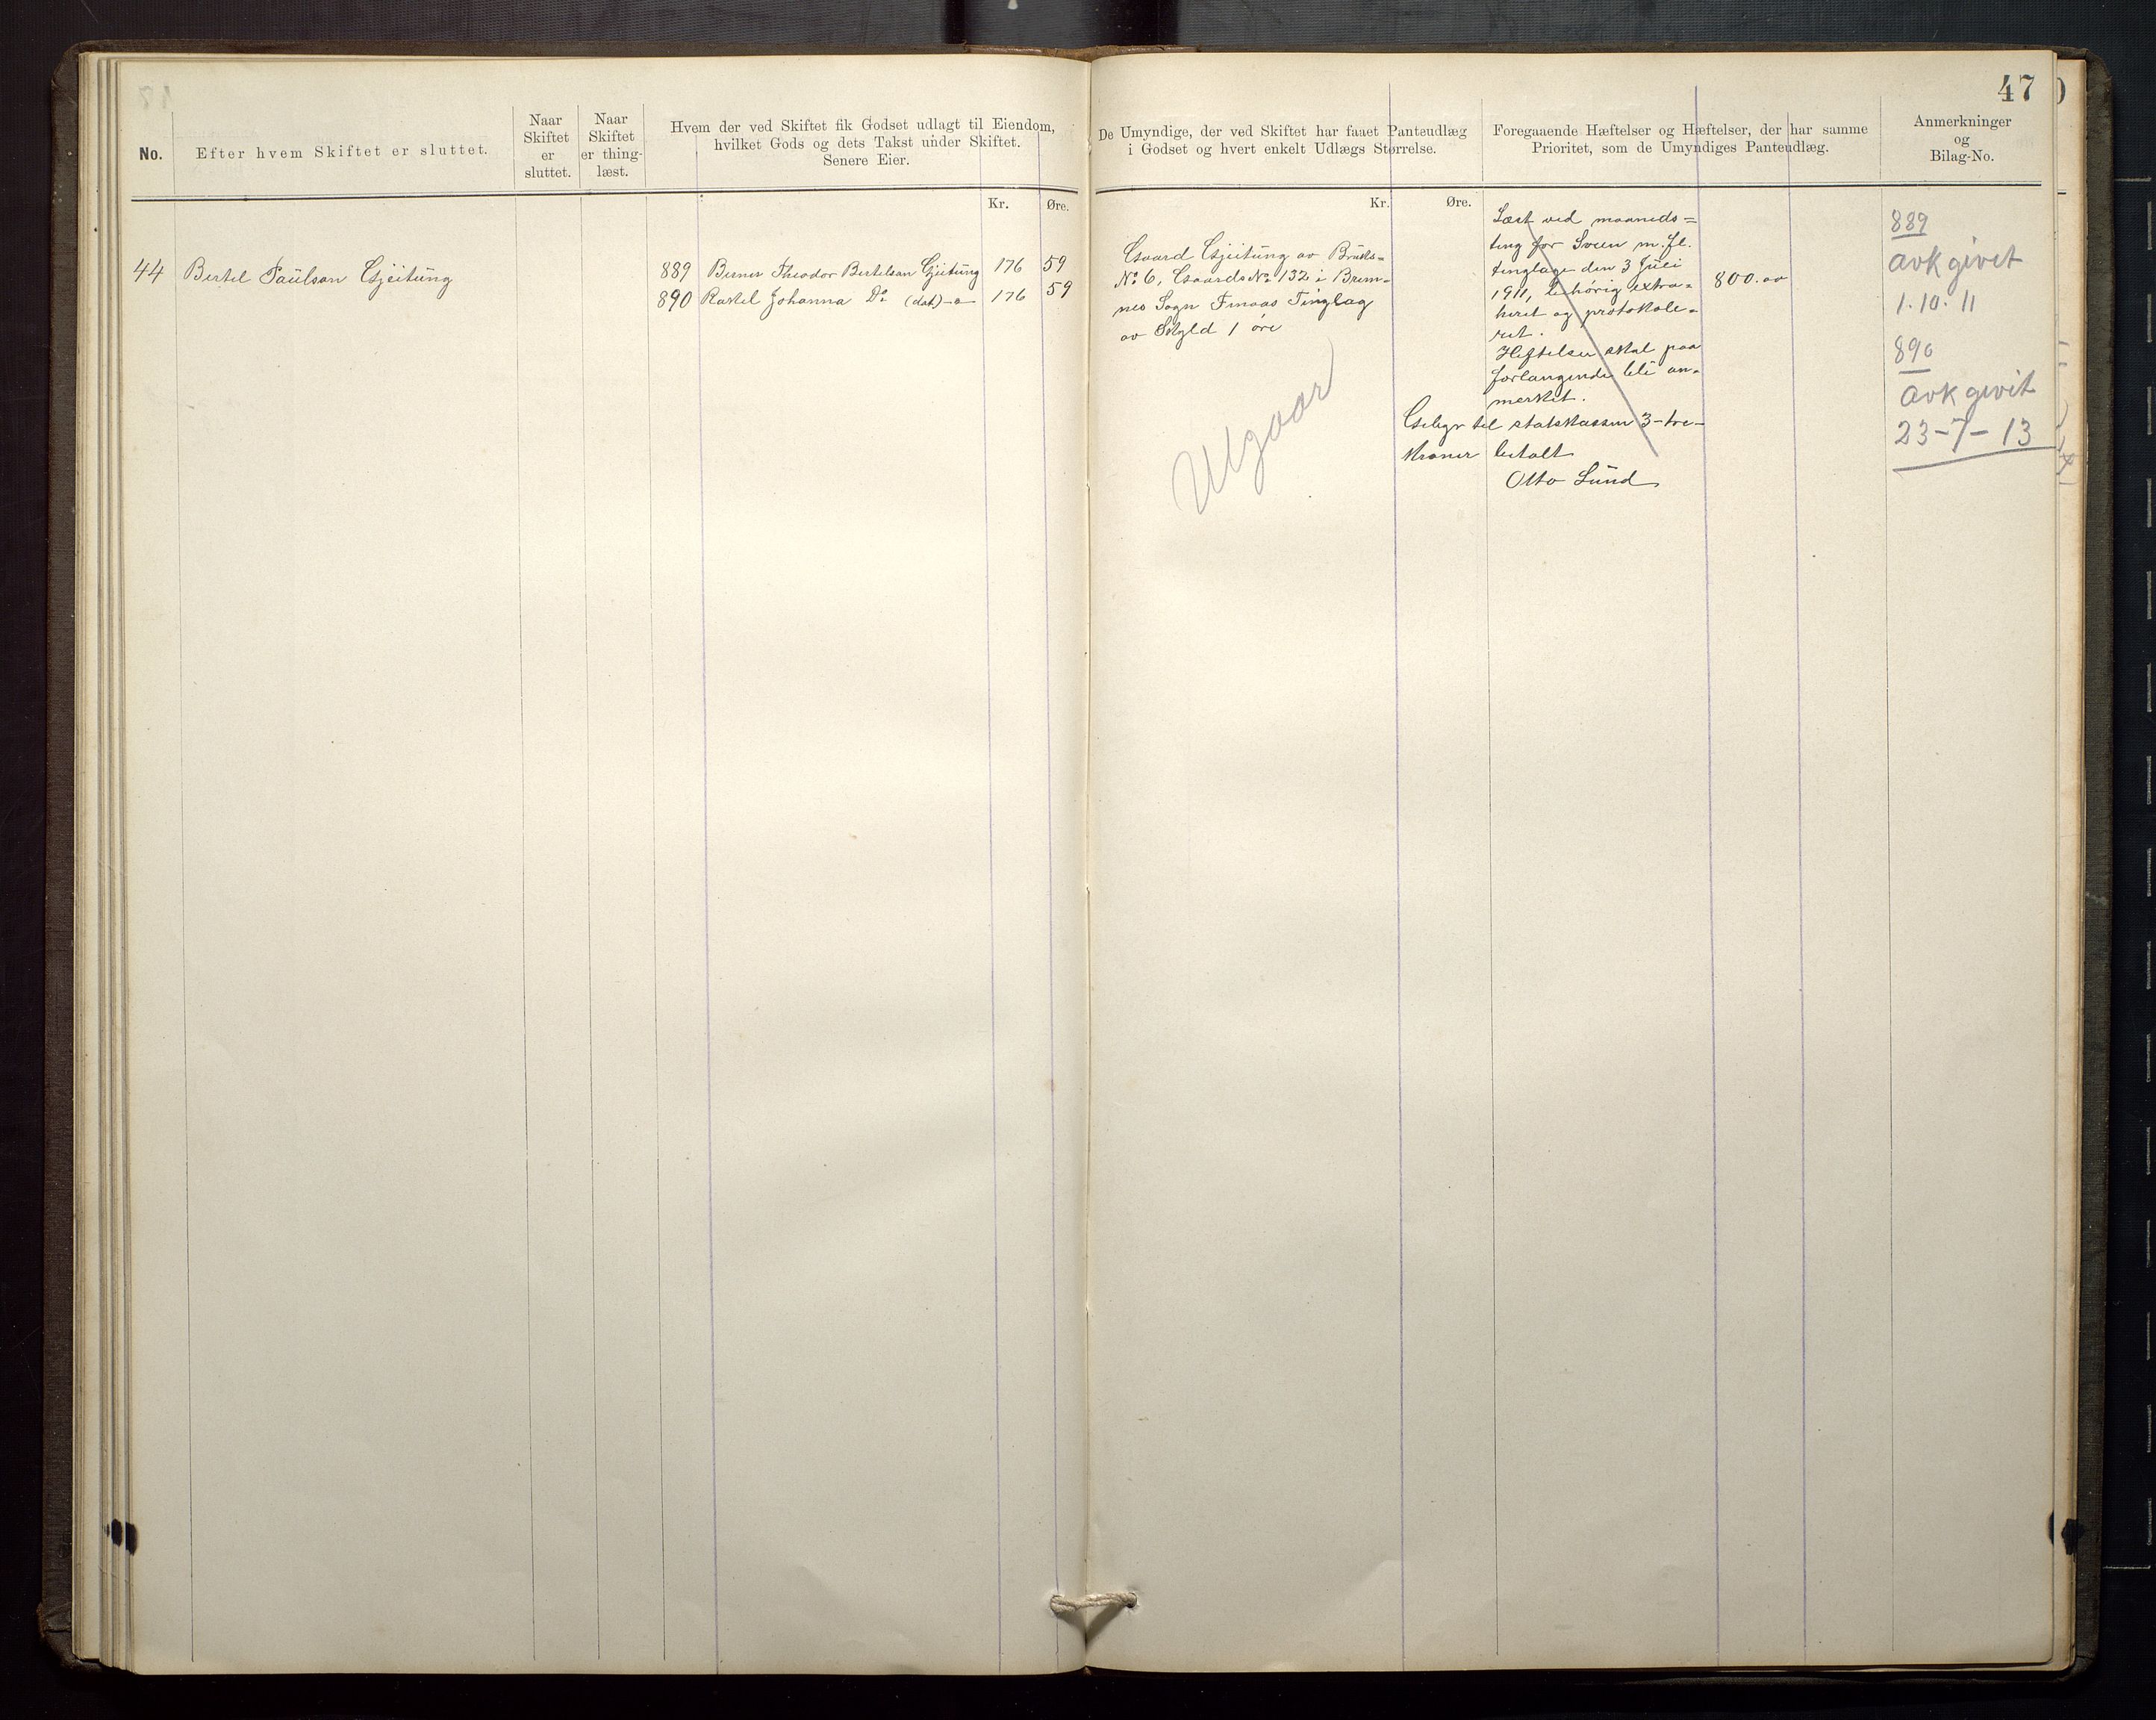 47
No.
Efter hvem Skiftet er sluttet.
Naar
Skiftet
er
sluttet.
Naar
Skiftet
er thing-
læst.
Hvem der ved Skiftet fik Godset udlagt til Eiendom,
hvilket Gods og dets Takst under Skiftet.
Senere Eier.
Kr. Øre.
44 Bertel Paulsen Gjeitung
889 Berner Theodor Bertelsen Gjeitung 176 59
890 Rakel Johanna Do (dat) -o- 176 59
De Umyndige, der ved Skiftet har faaet Panteudlæg
i Godset og hvert enkelt Udlægs Størrelse.
Kr. Øre.
Gaard Gjeitung av Bruks-
No 6, Gaards No 132 i Brem-
nes Sogn Finaas Tinglag
av Skyld 1 øre
Utgaar
Foregaaende Hæftelser og Hæftelser, der har samme
Prioritet, som de Umyndiges Panteudlæg.
Læst ved maaneds=
ting for Sveen m. fl.
tinglage den 3 Juli
1911, behørig extra=
heret og protokole=
ret.
800.00
Heftelser skal paa
forlangende bli an=
merket.
Gebyr til statskassen 3-tre-
kroner betalt
Otto Lund
Anmerkninger
og
Bilag-No.
889
avk givet
1.10.11
890
avk givet
23-7-13